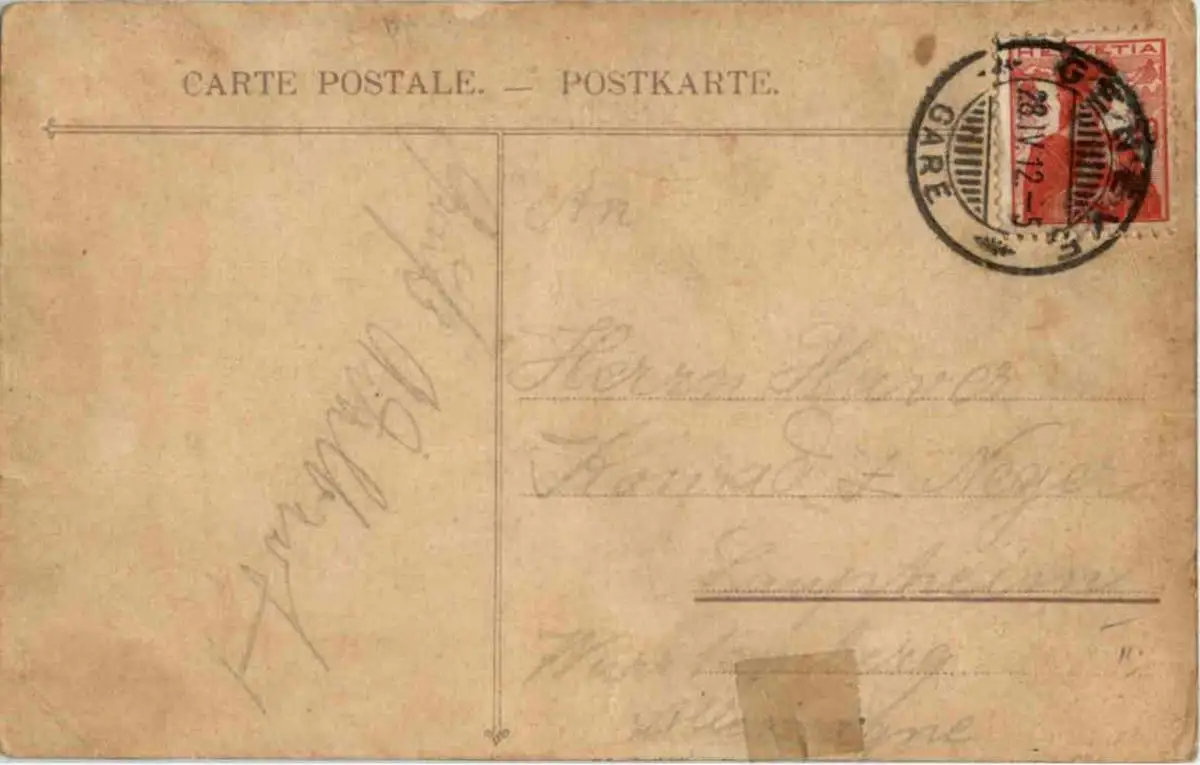 CARTE POSTALE. — POSTKARTE.
HELVETIA
GENÈVE
28.IV.12.-5
GARE
An
Herrn Xaver
Konrad z. Neger
Laupheim
Württemberg
Allemagne